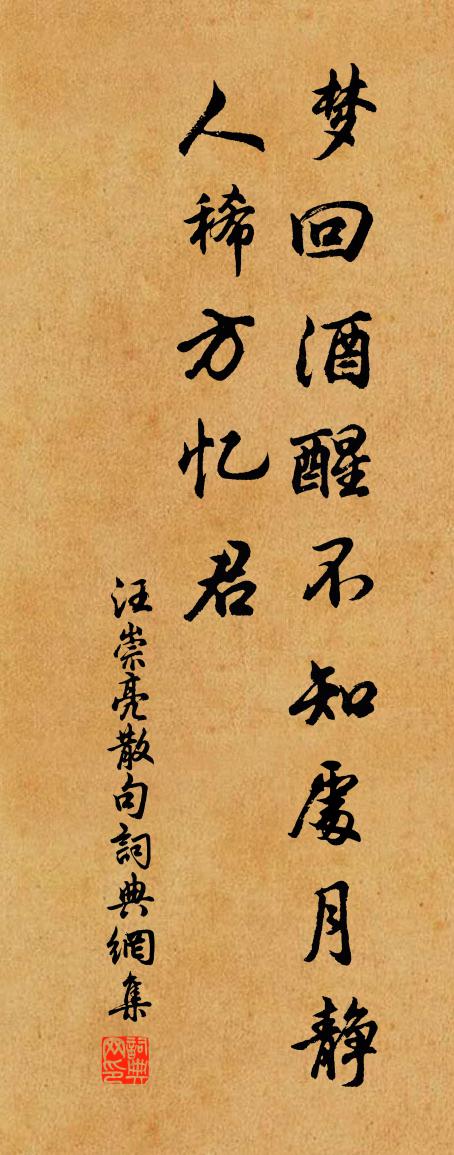 梦回酒醒不知處月静
人稀方忆君
汪崇亮散句詞典網集
詞典
网印